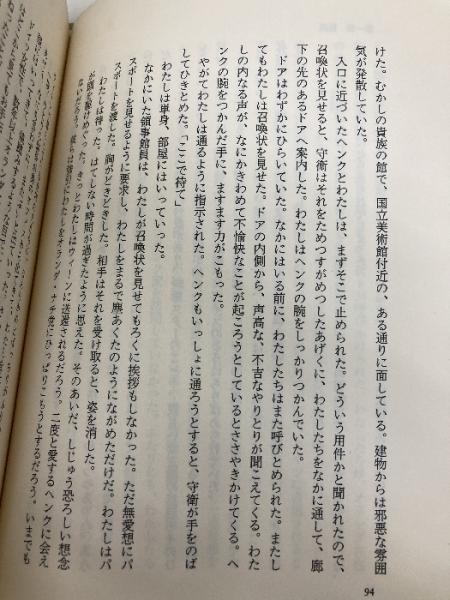 けた。むかしの貴族の館で、国立美術館付近の、ある通りに面している。建物からは邪悪な雰囲
気が発散していた。
入口に近づいたヘンクとわたしは、まずそこで止められた。どういう用件かと聞かれたので、
召喚状を見せると、守衛はそれをためつすがめつしたあげくに、わたしたちをなかに通して、廊
下の先のあるドアへ案内した。わたしはヘンクの腕をしっかりつかんでいた。
ドアはわずかにひらいていた。なかにはいる前に、わたしたちはまた呼びとめられた。またし
てもわたしは召喚状を見せた。ドアの内側から、声高な、不吉なやりとりが聞こえてくる。わた
しの内なる声が、なにかきわめて不愉快なことが起ころうとしているとささやきかけてくる。ヘ
ンクの腕をつかんだ手に、ますます力がこもった。
やがてわたしは通るように指示された。ヘンクもいっしょに通ろうとすると、守衛が手をのば
してひきとめた。「ここで待て」
わたしは単身、部屋にはいっていった。
なかにいた領事館員は、わたしが召喚状を見せてもろくに挨拶もしなかった。ただ無愛想にパ
スポートを見せるように要求し、わたしをまるで塵あくたのようにながめただけだ。わたしはパ
スポートを渡した。胸がどきどきした。相手はそれを受け取ると、姿を消した。
わたしは待った。はてしない時間が過ぎたように思えた。そのあいだ、しじゅう恐ろしい想念
が頭を駆けめぐった。きっとわたしはウィーンに送還されるだろう。二度と愛するヘンクに会え
ないだろう。彼らは強引にわたしをオランダ・ナチ党にひっぱりこもうとするだろう。いまでも
94